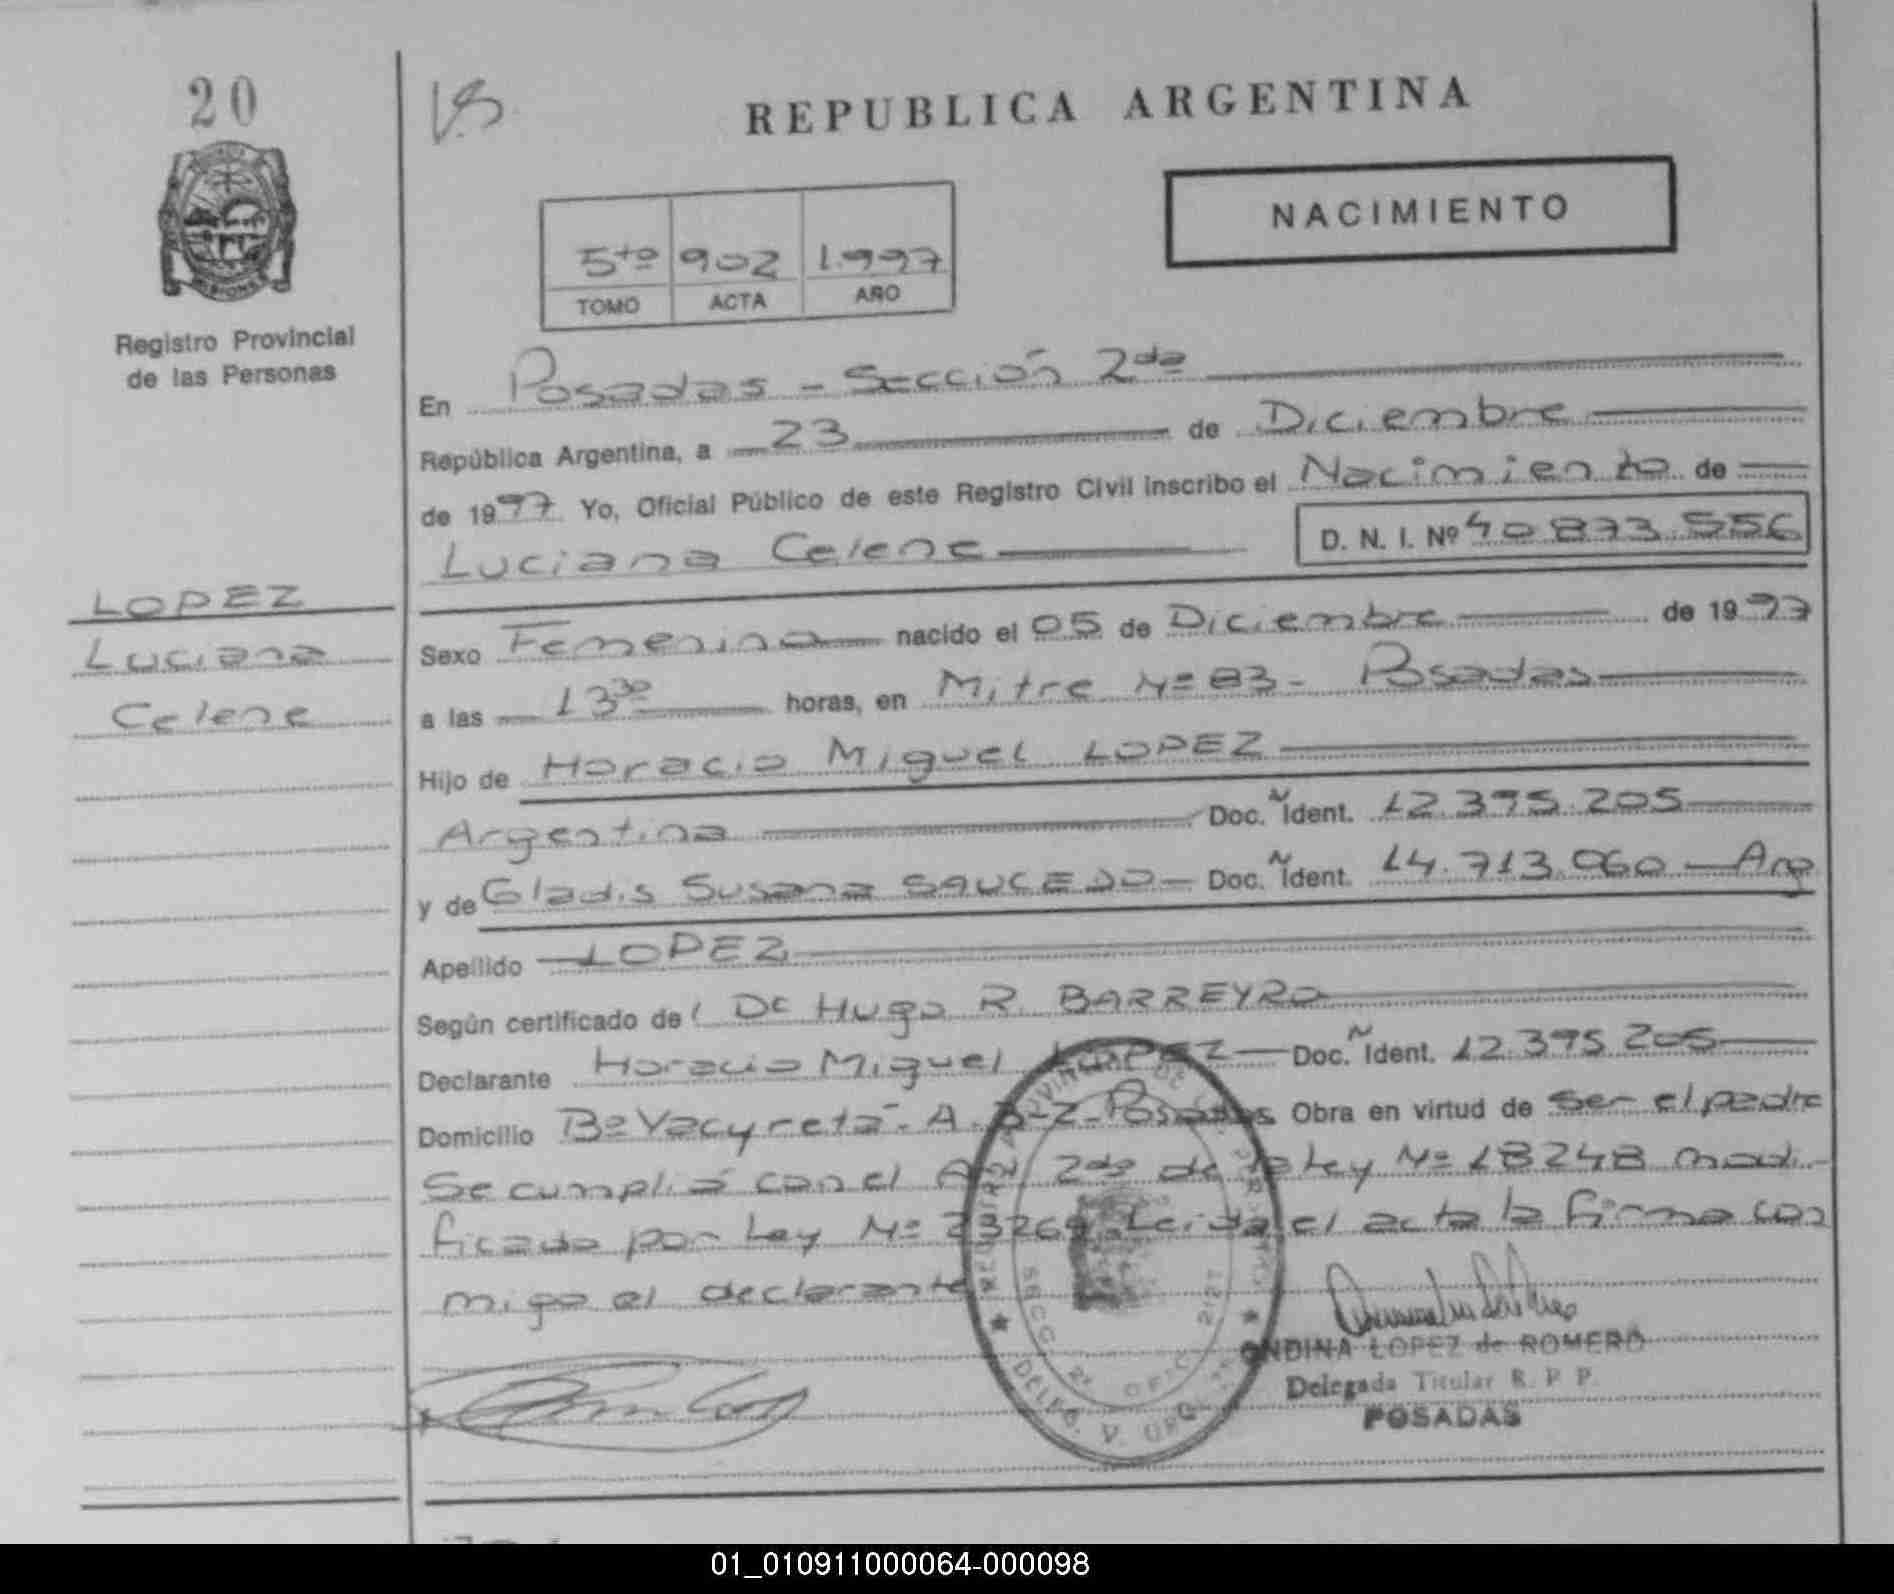 20
V.B.
REPUBLICA ARGENTINA
NACIMIENTO
5to 902 1.997
TOMO ACTA AÑO
Registro Provincial
de las Personas
En Posadas - Sección 2da
República Argentina, a 23 de Diciembre
de 1997 Yo, Oficial Público de este Registro Civil inscribo el Nacimiento de
Luciana Celene D. N. I. Nº 40 873.556
LOPEZ
Luciana
Celene
Sexo Femenino nacido el 05 de Diciembre de 1997
a las 13 30 horas, en Mitre Nº 83 - Posadas
Hijo de Horacio Miguel LOPEZ
Argentina Doc. Ident. 12.395.205
y de Gladis Susana SAUCEDO Doc. Ident. 14.713.060 - Arg
Apellido LOPEZ
Según certificado del Dr Hugo R. BARREYRO
Declarante Horacio Miguel LOPEZ Doc. Ident. 12.395 205
Domicilio Bº Yacyretá - A. 3-2- Posadas Obra en virtud de ser el padre
Se cumplió con el Art 2do de la Ley Nº 18248 modi-
ficado por Ley Nº 23264. Leida el acta la firma con
migo el declarante
ONDINA LOPEZ de ROMERO
Delegada Titular R. P. P.
POSADAS
01_010911000064-000098